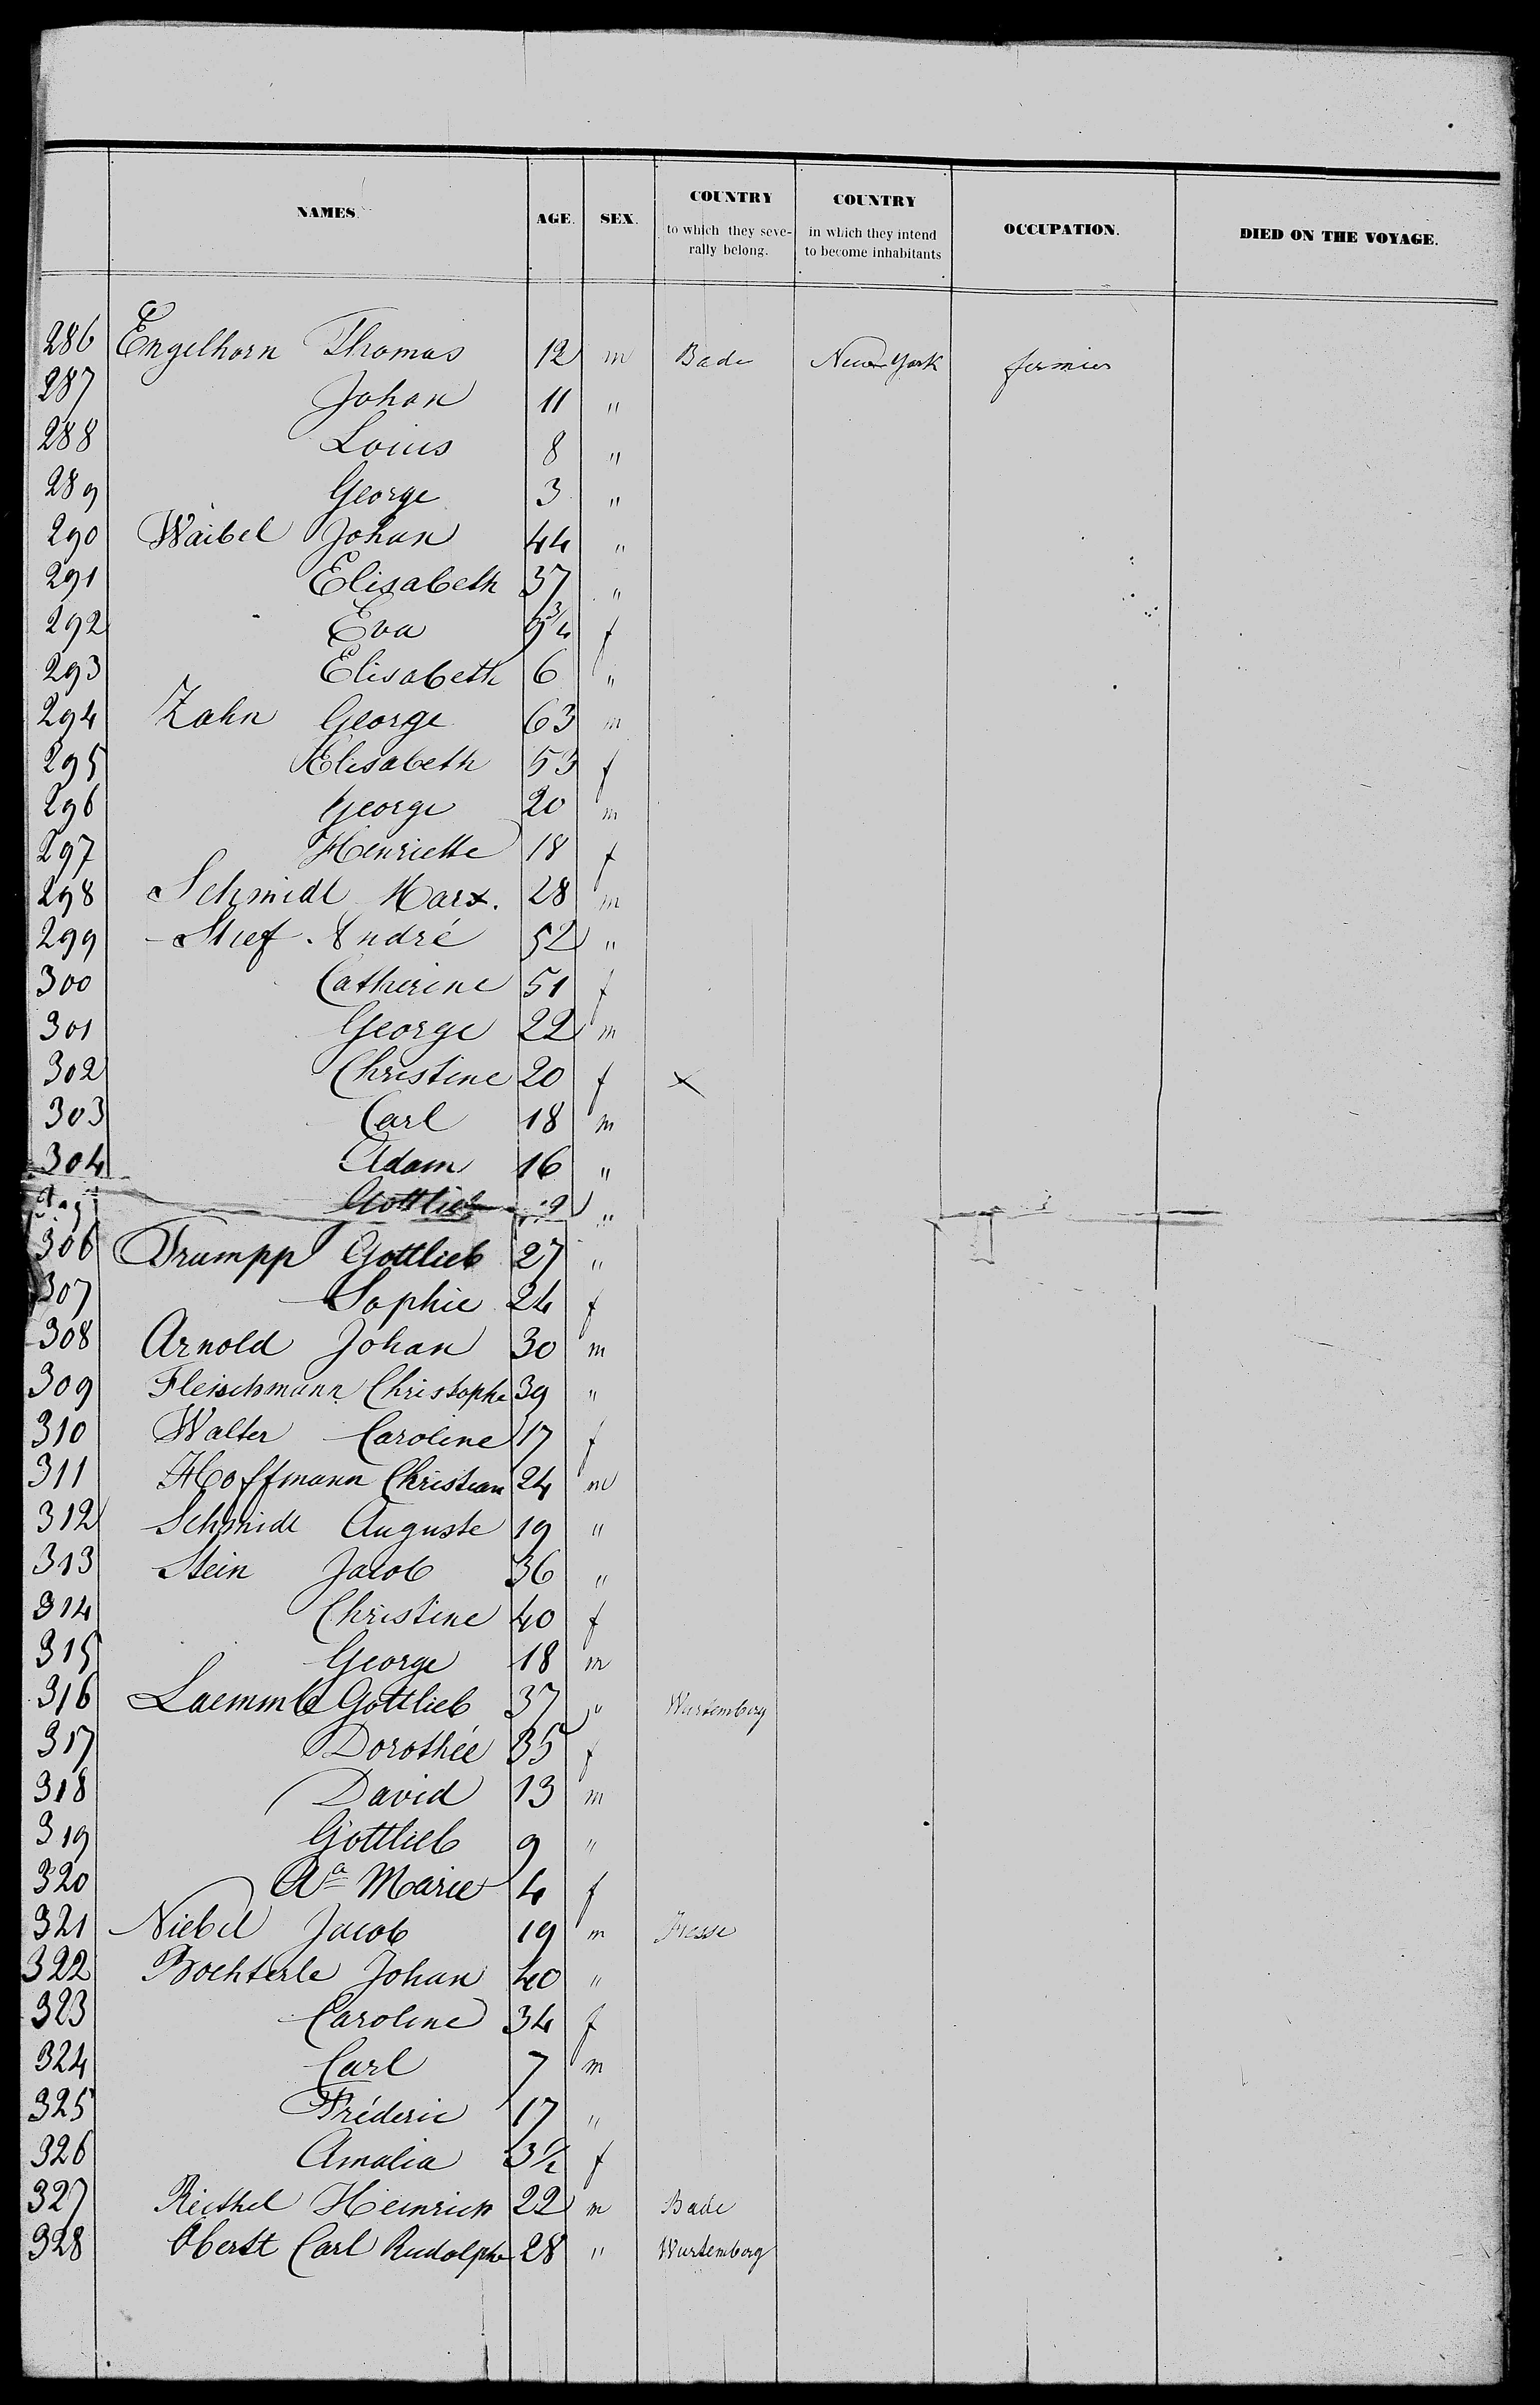 NAMES. AGE. SEX. COUNTRY to which they severally belong. COUNTRY in which they intend to become inhabitants OCCUPATION. DIED ON THE VOYAGE.
286 Engelhorn Thomas 12 m Bade New York fermier
287 Johan 11 "
288 Loius 8 "
289 George 3 "
290 Waibel Johan 44 "
291 Elisabeth 37 "
292 Eva 9 3/4 f
293 Elisabeth 6 "
294 Zahn George 63 m
295 Elisabeth 53 f
296 George 20 m
297 Henriette 18 f
298 Schmidt Marx. 28 m
299 Stief André 52 "
300 Catherine 51 f
301 George 22 m
302 Christine 20 f x
303 Carl 18 m
304 Adam 16 "
Gottlieb "
306 Trumpp Gottlieb 27 "
307 Sophie 24 f
308 Arnold Johan 30 m
309 Fleischmann Christophe 39 "
310 Walter Caroline 17 f
311 Hoffmann Christian 24 m
312 Schmidt Auguste 19 "
313 Stein Jacob 36 "
314 Christine 40 f
315 George 18 m
316 Laemmle Gottlieb 37 " Wurtemberg
317 Dorothée 35 f
318 David 13 m
319 Gottlieb 9 "
320 Aª Marie 4 f
321 Niebel Jacob 19 m Hesse
322 Bochterle Johan 40 "
323 Caroline 34 f
324 Carl 7 m
325 Fréderic 17 "
326 Amalia 3 1/2 f
327 Riethel Heinrich 22 m Bade
328 Oberst Carl Rudolphe 28 " Wurtemberg